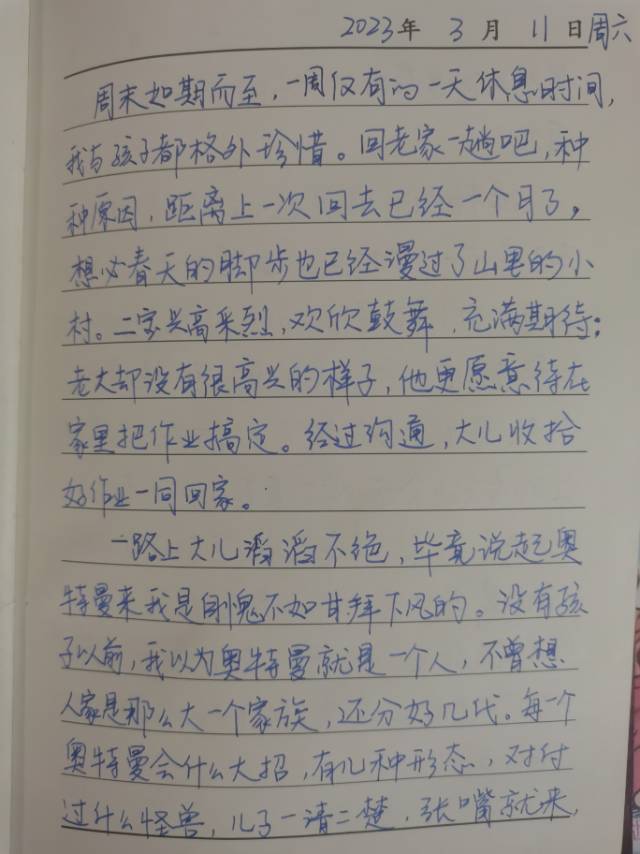 2023年 3月 11日周六
周末如期而至，一周仅有的一天休息时间，
我与孩子都格外珍惜。回老家一趟吧，种
种原因，距离上一次回去已经一个月了，
想必春天的脚步也已经漫过了山里的小
村。二宝兴高采烈，欢欣鼓舞，充满期待；
老大却没有很高兴的样子，他更愿意待在
家里把作业搞定。经过沟通，大儿收拾
好作业一同回家。
一路上大儿滔滔不绝，毕竟说起奥
特曼来我是自愧不如甘拜下风的。没有孩
子以前，我以为奥特曼就是一个人，不曾想
人家是那么大一个家族，还分好几代。每一个
奥特曼会什么大招，有几种形态，对付
过什么怪兽，儿子一清二楚，张嘴就来，